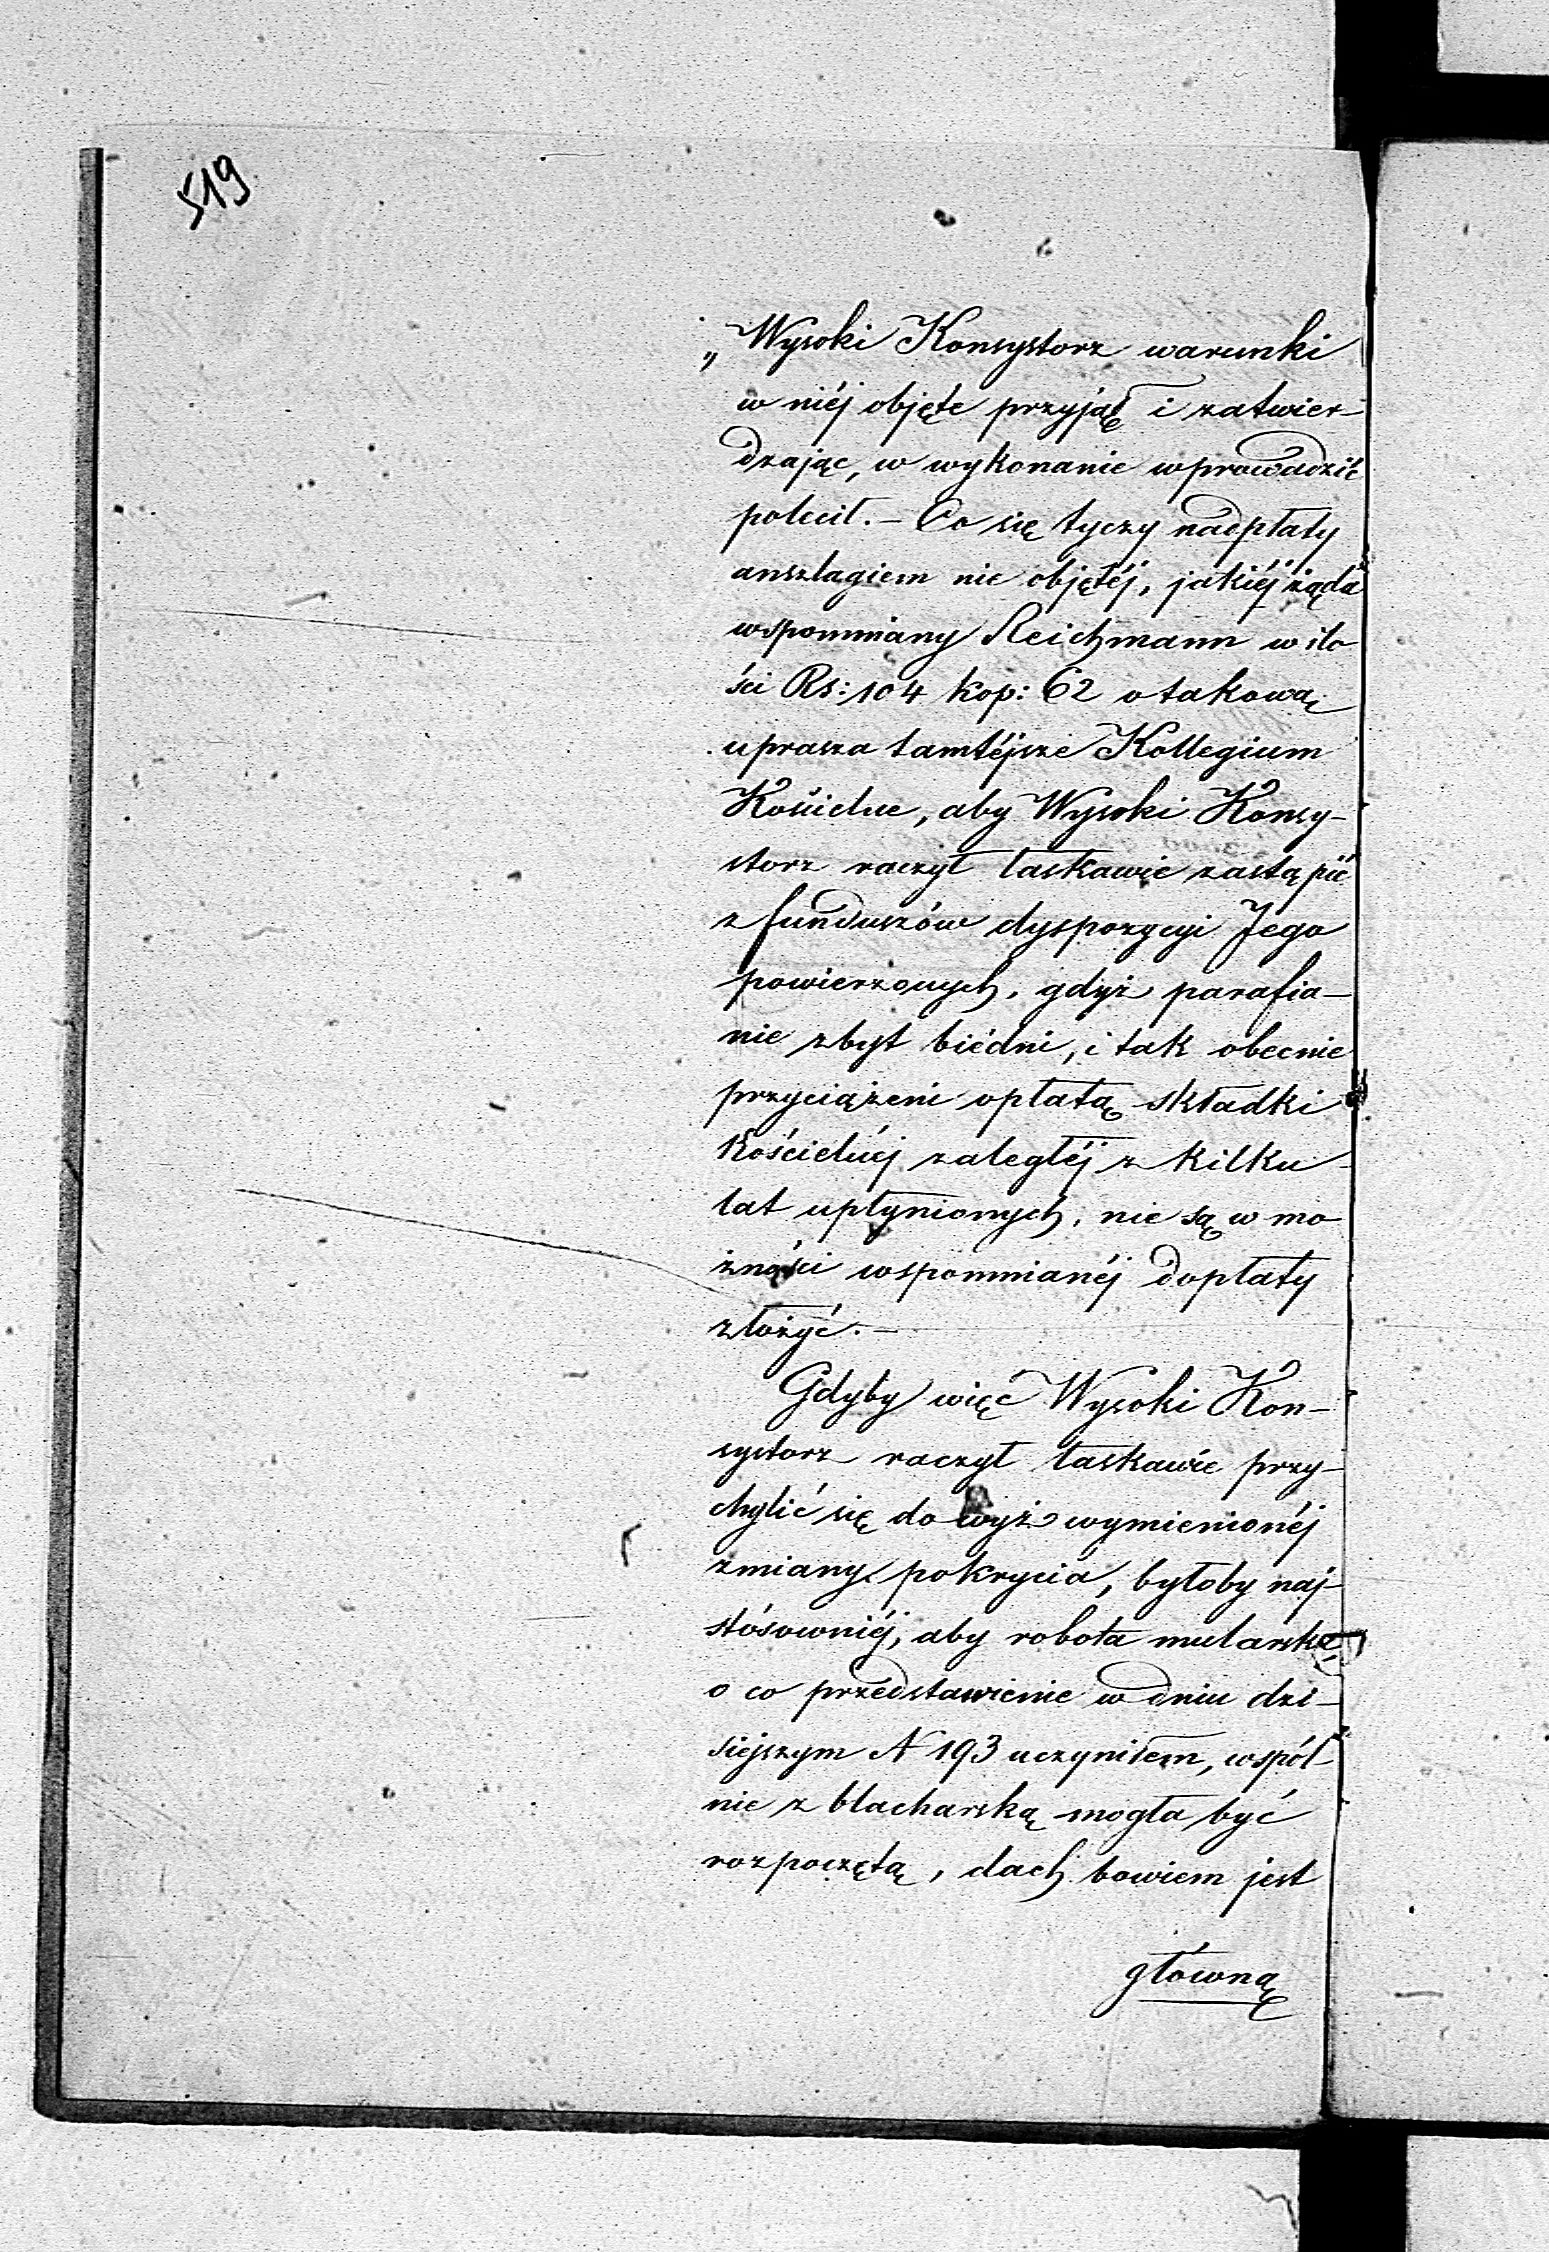 519
„Wysoki Konsystorz warunki
w niéj objęte przyjął i zatwier-
dzając, w wykonanie wprowadzić
polecił. – Co się tyczy nadpłaty
anszlagiem nie objętéj, jakiéj żąda
wspomniany Reichmann w ilo
ści Rs: 104 kop: 62 o takową
uprasza tamtéjsze Kollegium
Kościelne, aby Wysoki Konsy-
storz raczył łaskawie zastąpić
z funduszów dyspozycyi Jego
powierzonych, gdyż parafia-
nie zbyt biédni, i tak obecnie
przyciążeni opłatą składki
Kościelnéj zaległéj z kilku
lat upłynionych, nie są w mo
żności wspomnianéj dopłaty
złożyć. –
Gdyby więc Wysoki Kon-
systorz raczył łaskawie przy-
chylić się do wyż wymienionéj
zmiany pokrycia, byłoby naj-
stósowniéj, aby robota mularska
o co przedstawienie w dniu dzi-
siejszym N 193 uczyniłem, wspól-
nie z blacharską mogła być
rozpoczętą, dach bowiem jest
główną